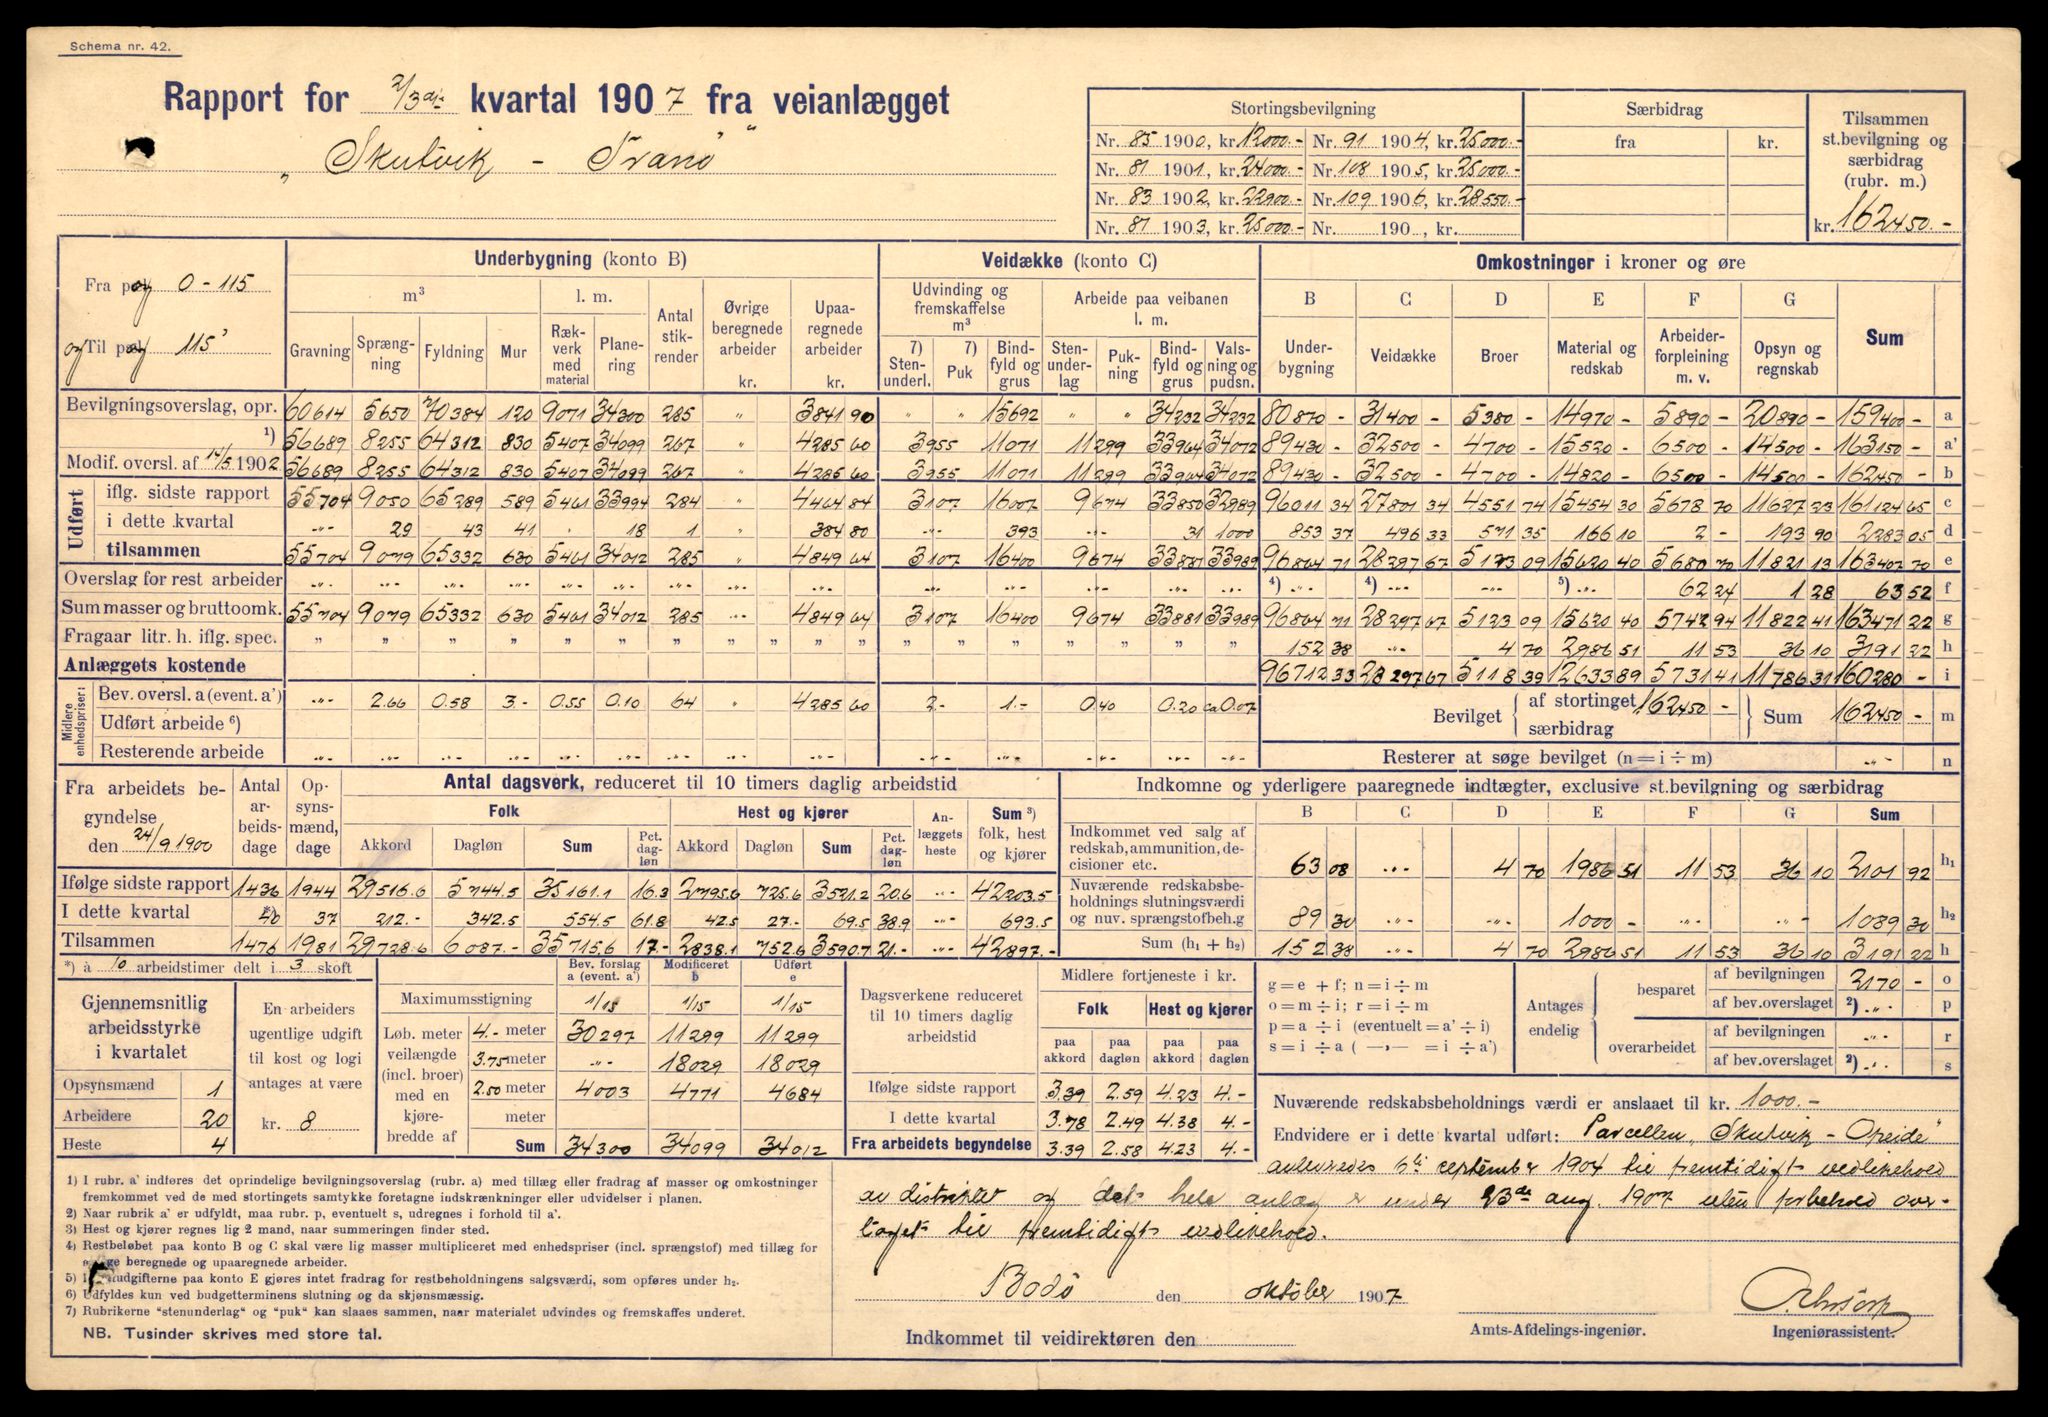 Schema nr. 42.
Rapport for 2/3die kvartal 1907 fra veianlægget
„Skutvik - Tranö"
Stortingsbevilgning Særbidrag Tilsammen st.bevilgning og særbidrag (rubr. m.)
fra kr.
Nr. 85 1900, kr. 12000.- Nr. 91 1904, kr. 25000.-
Nr. 81 1901, kr. 24000.- Nr. 108 1905, kr. 25000.-
Nr. 83 1902, kr. 22900.- Nr. 109 1906, kr. 28550.-
Nr. 87 1903, kr. 25000.- Nr. 190 , kr.
kr. 162450.-
Fra pæl 0 - 115
Til pæl 115
Underbygning (konto B) Veidække (konto C) Omkostninger i kroner og øre
m³ l. m. Antal stikrender Øvrige beregnede arbeider kr. Upaaregnede arbeider kr.
Gravning Sprængning Fyldning Mur Rækverk med material Planering
Udvinding og fremskaffelse m³ Arbeide paa veibanen l. m.
7) Stenunderl. 7) Puk Bindfyld og grus Stenunderlag Pukning Bindfyld og grus Valsning og pudsn.
B Underbygning C Veidække D Broer E Material og redskab F Arbeiderforpleining m. v. G Opsyn og regnskab Sum
Bevilgningsoverslag, opr. 60614 5650 70384 120 9071 34300 285 " 3841 90 " " 15692 " " 34232 34232 80870 - 31400 - 5380 - 14970 - 5890 - 20890 - 159400 - a
1) 56689 8255 64312 830 5407 34099 267 " 4285 60 3955 11071 11299 33964 34072 89430 - 32500 - 4700 - 15520 - 6500 - 14500 - 163150 - a'
Modif. oversl. af 14/5 1902 56689 8255 64312 830 5407 34099 267 " 4285 60 3955 11071 11299 33964 34072 89430 - 32500 - 4700 - 14820 - 6500 - 14500 - 162450 - b
Udført
iflg. sidste rapport 55704 9050 65289 589 5461 33994 284 " 4464 84 3107 16007 9674 33850 32989 96011 34 27801 34 4551 74 15454 30 5678 70 11627 23 161124 65 c
i dette kvartal -"- 29 43 41 18 1 " 384 80 -"- 393 -"- 31 1000 853 37 496 33 571 35 166 10 2 - 193 90 2283 05 d
tilsammen 55704 9079 65332 630 5461 34012 285 " 4849 64 3107 16400 9674 33881 33989 96864 71 28297 67 5123 09 15620 40 5680 70 11821 13 163407 70 e
Overslag for rest arbeider 4) -"- 4) -"- -"- 5) -"- 62 24 1 28 63 52 f
Sum masser og bruttoomk. 55704 9079 65332 630 5461 34012 285 4849 64 3107 16400 9674 33881 33989 96864 71 28297 67 5123 09 15620 40 5742 94 11822 41 163471 22 g
Fragaar litr. h. iflg. spec. 152 38 -"- 4 70 2986 51 11 53 36 10 3191 22 h
Anlæggets kostende 96712 33 28297 67 5118 39 12633 89 5731 41 11786 31 160280 - i
Midlere enhedspriser:
Bev. oversl. a (event. a') -"- 2.66 0.58 3.- 0.55 0.10 64 " 4285 60 2.- 1.- 0.40 0.20 ca 0.07
Udført arbeide 6)
Resterende arbeide
Bevilget af stortinget 162450 - særbidrag Sum 162450 - m
Resterer at søge bevilget (n = i ÷ m) -"- n
Fra arbeidets begyndelse den 24/9 1900
Antal arbeidsdage Opsynsmænd, dage
Antal dagsverk, reduceret til 10 timers daglig arbeidstid
Folk Hest og kjører Anlæggets heste Sum 3) folk, hest og kjører
Akkord Dagløn Sum Pct. dagløn Akkord Dagløn Sum Pct. dagløn
Ifølge sidste rapport 1436 1944 29516.6 5744.5 35161.1 16.3 2795.6 725.6 3521.2 20.6 -"- 42203.5
I dette kvartal *) 40 37 212.- 342.5 554.5 61.8 42.5 27.- 69.5 38.9 -"- 693.5
Tilsammen 1476 1981 29728.6 6087.- 35715.6 17.- 2838.1 752.6 3590.7 21.- -"- 42897.-
Indkomne og yderligere paaregnede indtægter, exclusive st.bevilgning og særbidrag
B C D E F G Sum
Indkommet ved salg af redskab, ammunition, decisioner etc. 63 08 -"- 4 70 1986 51 11 53 36 10 2101 92 h₁
Nuværende redskabsbeholdnings slutningsværdi og nuv. sprængstofbeh.g 89 30 -"- -"- 1000 - -"- -"- 1089 30 h₂
Sum (h₁ + h₂) 152 38 -"- 4 70 2986 51 11 53 36 10 3191 22 h
*) à 10 arbeidstimer delt i 3 skoft
Gjennemsnitlig arbeidsstyrke i kvartalet
Opsynsmænd 1
Arbeidere 20
Heste 4
En arbeiders ugentlige udgift til kost og logi antages at være kr. 8
Bev. forslag a (event. a') Modificeret b Udført e
Maximumsstigning 1/15 1/15 1/15
Løb. meter veilængde (incl. broer) med en kjørebredde af
4.- meter 30297 11299 11299
3.75 meter -"- 18029 18029
2.50 meter 4003 4771 4684
meter
Sum 34300 34099 34012
Dagsverkene reduceret til 10 timers daglig arbeidstid
Midlere fortjeneste i kr.
Folk Hest og kjører
paa akkord paa dagløn paa akkord paa dagløn
Ifølge sidste rapport 3.39 2.59 4.23 4.-
I dette kvartal 3.78 2.49 4.38 4.-
Fra arbeidets begyndelse 3.39 2.58 4.23 4.-
g = e + f; n = i ÷ m
o = m ÷ i; r = i ÷ m
p = a ÷ i (eventuelt = a' ÷ i)
s = i ÷ a ( —›— = i ÷ a')
Antages endelig besparet af bevilgningen 2170 - o
af bev.overslaget 2) -"- p
overarbeidet af bevilgningen -"- r
af bev.overslaget 2) -"- s
Nuværende redskabsbeholdnings værdi er anslaaet til kr. 1000.-
Endvidere er i dette kvartal udført: Parcellen „Skutvik - Opeide"
6te september 1904 til fremtidigt vedlikehold
av distriktet og det hele anlæg er under 23de aug. 1907 uten forbehold over-
taget til fremtidigt vedlikehold.
Bodö den oktober 1907
Amts-Afdelings-ingeniør.
Ingeniørassistent.
Indkommet til veidirektøren den
1) I rubr. a' indføres det oprindelige bevilgningsoverslag (rubr. a) med tillæg eller fradrag af masser og omkostninger
fremkommet ved de med stortingets samtykke foretagne indskrænkninger eller udvidelser i planen.
2) Naar rubrik a' er udfyldt, maa rubr. p, eventuelt s, udregnes i forhold til a'.
3) Hest og kjører regnes lig 2 mand, naar summeringen finder sted.
4) Restbeløbet paa konto B og C skal være lig masser multipliceret med enhedspriser (incl. sprængstof) med tillæg for
beregnede og upaaregnede arbeider.
5) I udgifterne paa konto E gjøres intet fradrag for restbeholdningens salgsværdi, som opføres under h₂.
6) Udfyldes kun ved budgetterminens slutning og da skjønsmæssig.
7) Rubrikerne "stenunderlag" og "puk" kan slaaes sammen, naar materialet udvindes og fremskaffes underet.
NB. Tusinder skrives med store tal.